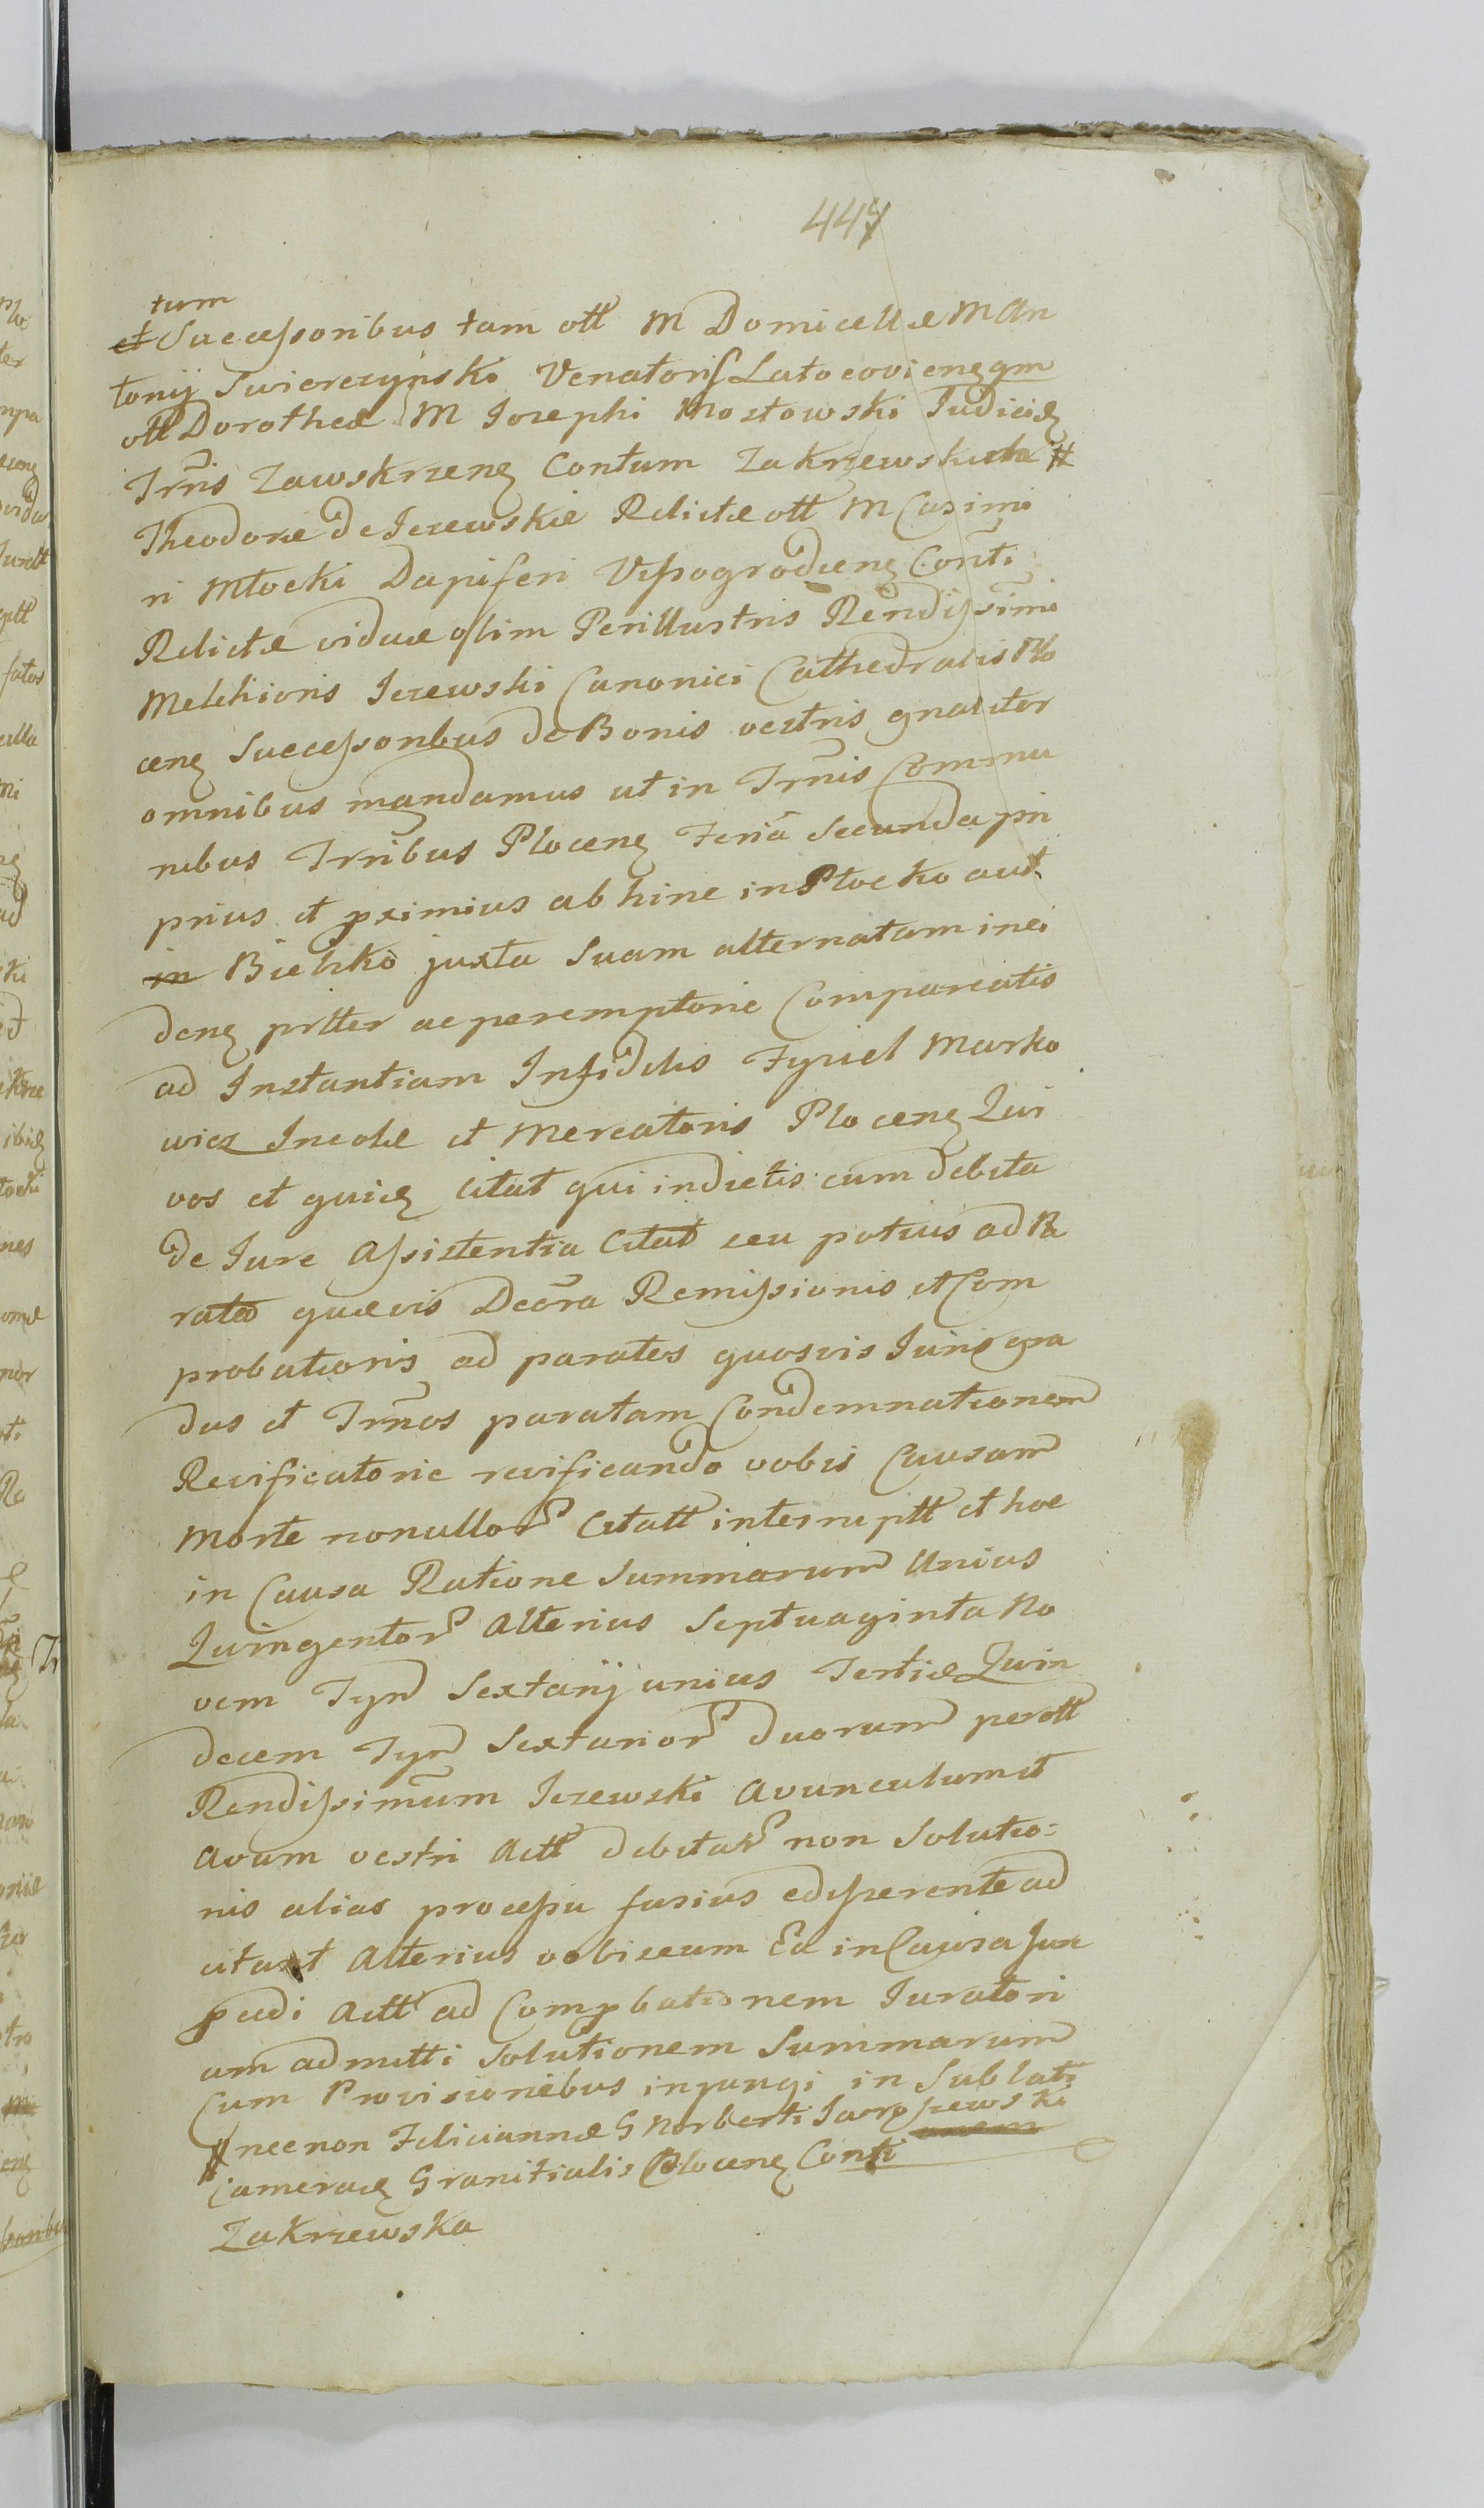 447
tum
et Successoribus tam olt M Domicellæ M An
tonij Swierczynski Venatoris Latocoviens gm
olt Dorotheæ M Iosephi Mostowski Iudicis
Trnis Zawskrzens Contum Zakrzewski #
Theodoræ de Jezewskie Relictæ olt M Casimi
ri Młocki Dapiferi Vissogrodiens Conti
Relictæ viduæ olim Perillustris Rendissimi
Melchioris Jezewski Canonici Cathedralis Plo
cens Successoribus de Bonis vestris gnaliter
omnibus mandamus ut in Trnis Commu
nibus Trribus Plocens Feria Secunda pri
prius et pximius ab hinc in Płocko aut
in Bielsko juxta Suam alternatam inci
dens prltter ac peremptorie Compareatis
ad Instantiam Infidelis Fyziel Marko
wicz Incolæ et Mercatoris Plocens Qui
vos et quis Citat qui in dictis cum debita
de Iure Assistentia Citat seu potius ad Pa
rata quævis Decra Remissionis et Com
probationis ad paratos quosvis Iuris gra
dus et Trnos paratam Condemnationem
Reificatorie reificando vobis Causam
Morte nonullor Citatt interruptt et hoc
in Causa Ratione Summarum Unius
Quingentor Alterius Septuaginta No
vem Tyn Sextarij unius Tertiæ Quin
decem Tyn Sextarior duorum per olt
Rendissimum Jezewski Avunculum et
Avum vestri Actt debitar non Solutio=
nis alias processu fusius edisserente ad
citatt Alterius vobiscum Ea in Causa Jux
pudi Actt ad Compbationem Iuratori
am admitti Solutionem Summarum
Cum Provisionibus injungi in Sublat
# necnon Feliciannæ G Norberti Jaroszewski
Cameras Granitialis Plocens Conti
Zakrzewska